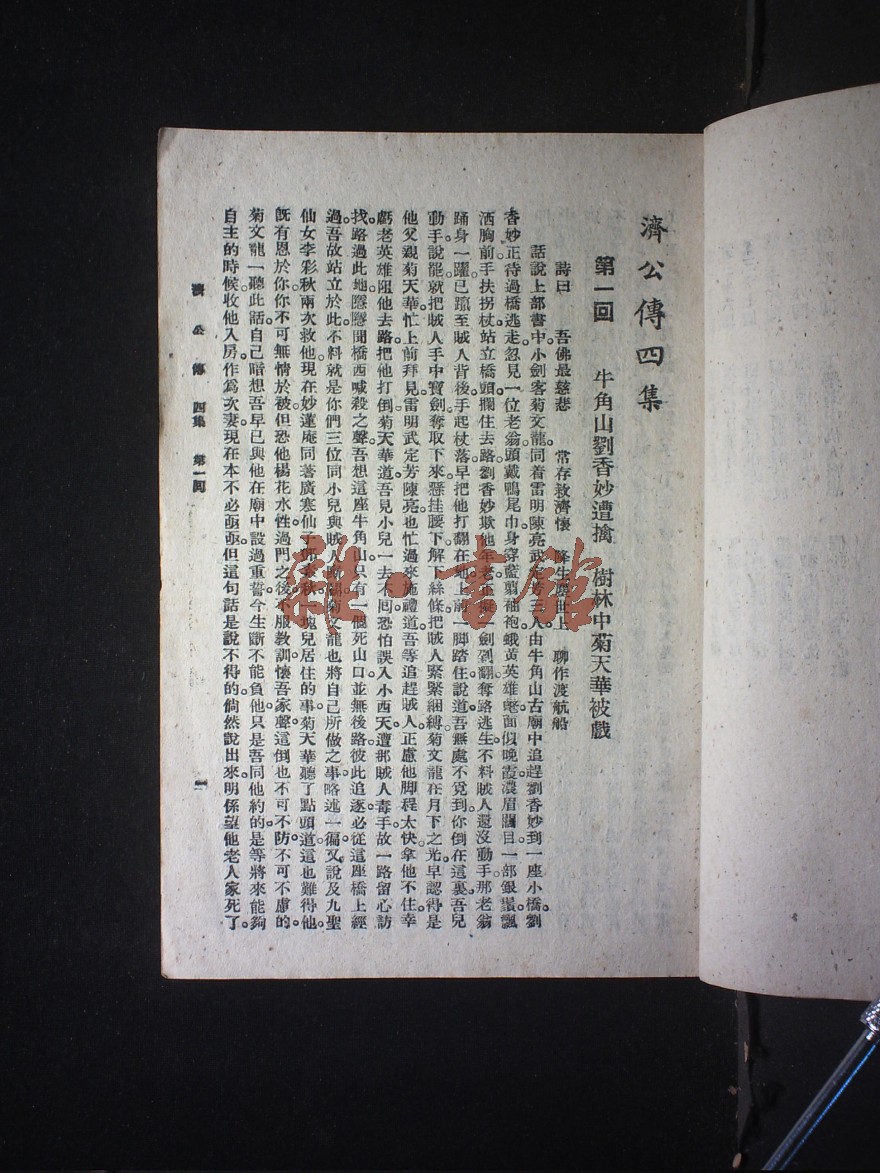 濟公傳四集
第一回　牛角山劉香妙遭擒　樹林中菊天華被戲
詩曰　吾佛最慈悲　常存救濟懷　降生塵世上　聊作渡航船
話說上部書中小劍客菊文龍。同着雷明陳亮武定芳三人由牛角山古廟中追趕劉香妙到一座小橋。劉
香妙正待過橋逃走忽見一位老翁。頭戴鴨尾巾身穿藍翦袖袍蛾黃英雄氅面似晚霞濃眉闊目一部銀鬚飄
洒胸前手扶拐杖站立橋頭攔住去路劉香妙欺他年老。正擬一劍刴翻奪路逃生不料賊人還沒動手那老翁
踊身一躍已躥至賊人背後。手起杖落。早把他打翻在地上前一脚踏住說道吾無處不覓到你倒在這裏。吾兒
動手說罷就把賊人手中寶劍奪取下來懸挂腰下解下絲條把賊人緊緊綑縛。菊文龍在月下之光。早認得是
他父親菊天華。忙上前拜見。雷明武定芳陳亮也忙過來施禮道吾等追趕賊人。正慮他脚程太快拿他不住幸
虧老英雄阻他去路。把他打倒菊天華道吾見小兒一去不囘恐怕誤入小西天遭那賊人毒手故一路留心訪
找路過此地。隱隱聞橋西喊殺之聲。吾想這座牛角山只有一個死山口並無後路彼此追逐必從這座橋上經
過。吾故站立於此。不料就是你們三位同小兒與賊人厮鬭。菊文龍也將自己所做之事。略述一徧。又說及九聖
仙女李彩秋兩次救他。現在妙蓮庵同著廣寒仙子 秋一塊兒居住的事。菊天華聽了點頭道。這也難得他。
旣有恩於你。你不可無情於彼但恐他楊花水性。過門之後。不服教訓。懷吾家聲。這倒也不可不防。不可不慮的。
菊文龍一聽此話。自己暗想吾早已與他在廟中設過重誓。今生斷不能負他。只是吾同他約的是等將來能夠
自主的時候。收他入房。作爲次妻。現在本不必亟亟。但這句話是說不得的。倘然說出來。明係望他老人家死了。
濟公傳　四集　第一囘　一
雜·書館